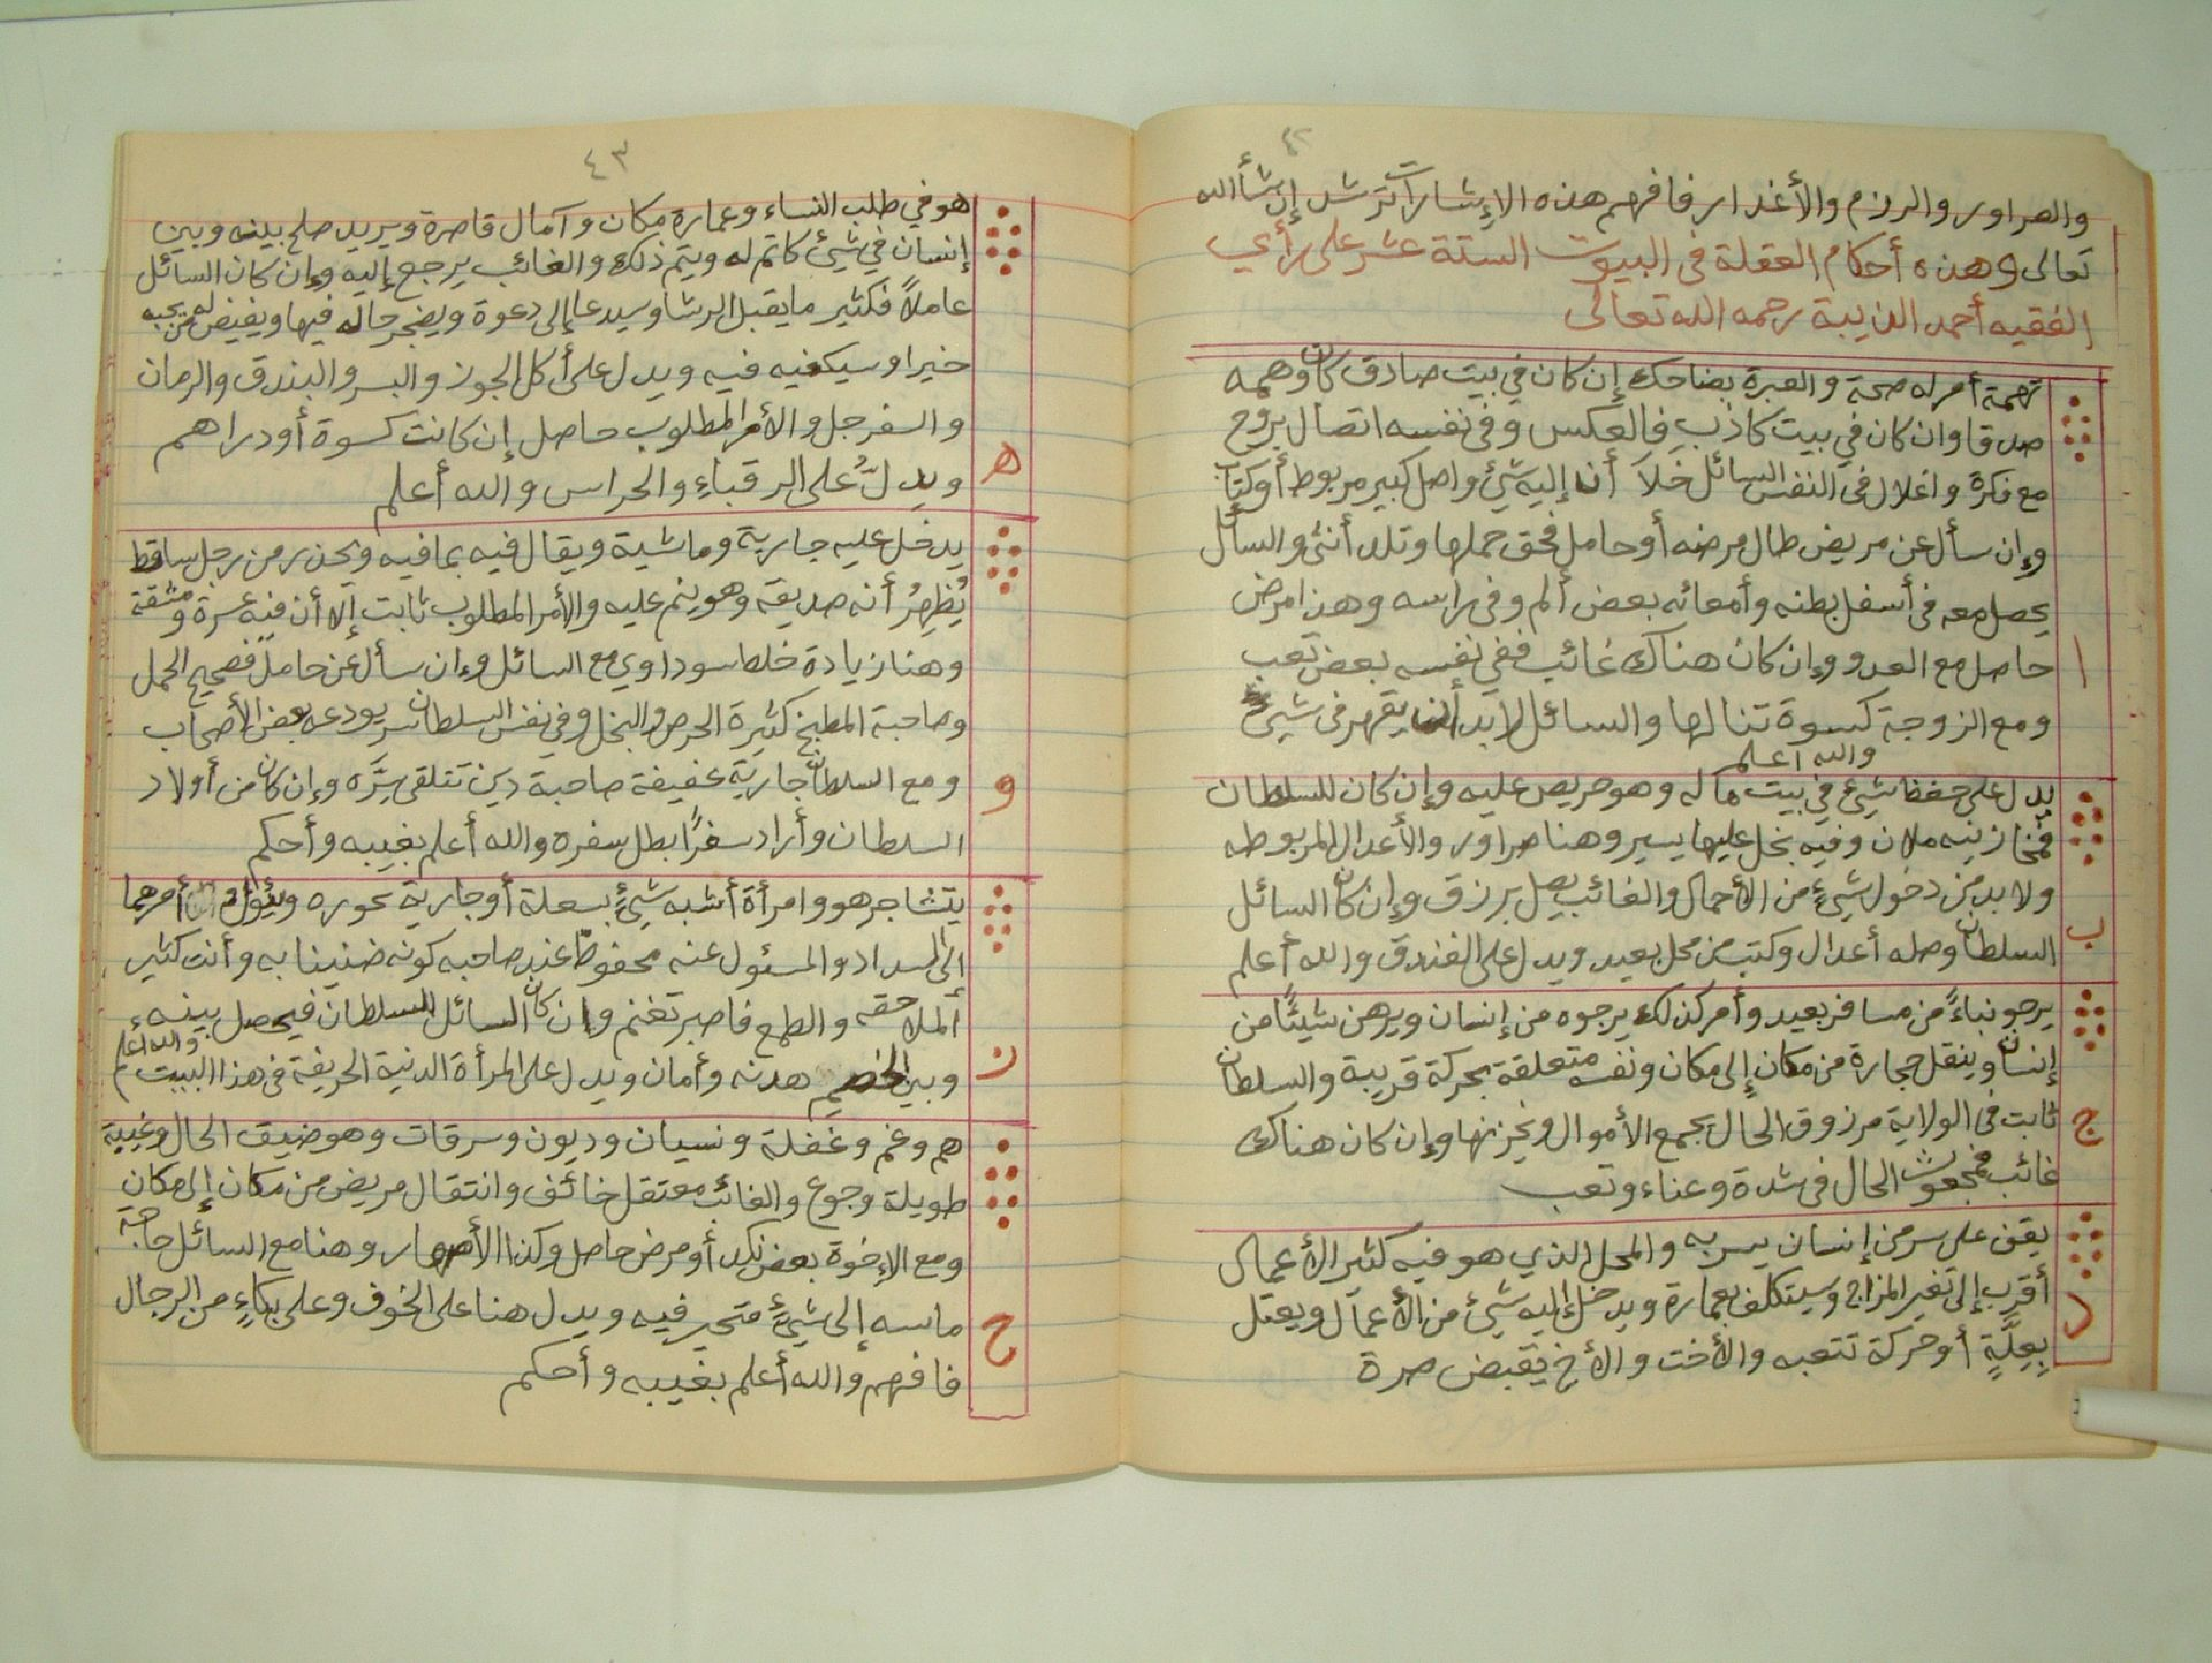 ٤٢
والصراور والرزم والأغدار فافهم هذه الإشارات ترشد إن شأ الله
تعالى وهذه أحكام العقلة في البيوت الستة عشر على رأي
الفقيه أحمد الذيبة رحمه الله تعالى
تهمة أمر له صحة والعبرة بضاحك إن كان في بيت صادق كان وهمه
صدقا وان كان في بيت كاذب فالعكس وفي نفسه اتصال بروح
مع فكرة واغلال في النفس السائل خلا أن إليه شئ واصل كبير مربوط أو كتاب
وإن سأل عن مريض طال مرضه أو حامل فحق حملها وتلد أنثى والسائل
يحصل معه في أسفل بطنه وأمعائه بعض ألم وفي راسه وهذا مرض
ا
حاصل مع العدو وإن كان هناك غائب ففي نفسه بعض تعب
ومع الزوجة كسوة تنالها والسائل لا بد أن يقهر في شيئ
والله أعلم
يدل على حفظ شيئ في بيت ماله وهو حريص عليه وإن كان للسلطان
فمخازنه ملان وفيه بخل عليها يسير وهنا صراور والأعدال المربوطه
ولا بد من دخول شيئ من الأحمال والغائب يصل برزق وإن كان السائل
ب
السلطان وصله أعدال وكتب من محل بعيد ويدل على الفندق والله أعلم
يرجو نباءً من مسافر بعيد وأمر كذلك يرجوه من إنسان ويرهن شيئًا من
إنسان وينقل حجارة من مكان إلى مكان ونفسه متعلقة بحركة قريبة والسلطان
ج
ثابت في الولاية مرزوق الحال يجمع الأموال ويخزنها وإن كان هناك
غائب فمجعوث الحال في شدة وعناء وتعب
يقف على سر من إنسان يسر به والمحل الذي هو فيه كثير الأعمال
د
أقرب إلى تغير المزاج وسيتكلف بعمارة ويدخل إليه شيئ من الأعمال ويعتل
بعلّةٍ أو حركة تتعبه والأخت والأخ يقبض صرة
٤٣
هو في طلب النساء وعمارة مكان وآمال قاصرة ويريد صلح بينه وبين
إنسان في شيئ كاتم له ويتم ذلك والغائب يرجع إليه وإن كان السائل
عاملاً فكثير ما يقبل الرشا وسيدعا إلى دعوة ويضجر حاله فيها ويفيض له من يحبه
خيرا وسيكفيه فيه ويدل على أكل الجوز والبسر والبندق والرمان
والسفرجل والأمر المطلوب حاصل إن كانت كسوة أو دراهم
ه
ويدلُّ على الرقباءِ والحراس والله أعلم
يدخل عليه جارية وماشية ويقال فيه بما فيه ويحذر من رجل ساقط
يُظهِرُ أنه صديقه وهو ينم عليه والأمر المطلوب ثابت إلا أن فيه عسرة ومشقة
وهنا زيادة خلط سوداوي مع السائل وإن سأل عن حامل فصحيح الحمل
وصاحبة المطبخ كثيرة الحرص والبخل وفي نفس السلطان سر يودعه بعض الأصحاب
و
ومع السلطان جارية عفيفة صاحبة دين تتلقى سرَّه وإن كان من أولاد
السلطان وأراد سفرًا بطل سفره والله أعلم بغيبه وأحكم
يتشاجر هو وامرأة أشبه شيئٍ بسعلة أو جارية عوره ويئول أمرهما
إلى السداد والمسئول عنه محفوظ عند صاحبه كونه ضنينا به وأنت كثير
الملاحقه والطمع فاصبر تغنم وان كان السائل للسلطان فيحصل بينه
ز
وبين الخصم هدنه وأمان ويدل على المرأة الدنية الحريفة في هذا البيت والله أعلم
هم وغم وغفلة ونسيان وديون وسرقات وهو ضيق الحال وغيبة
طويلة وجوع والغائب معتقل خائف وانتقال مريض من مكان إلى مكان
ومع الإخوة بعض نكد أو مرض حاصل وكذا الأصهار وهنا مع السائل حاجة
ح
ماسه إلى شيئٍ متحير فيه ويدل هنا على الخوف وعلى بكاءٍ من الرجال
فافهم والله أعلم بغيبه وأحكم